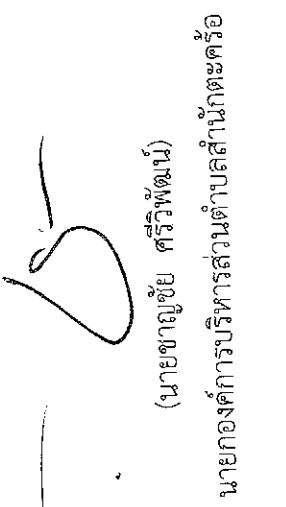 (นายชาญชัย ศรีวิพัฒน์)
นายกองค์การบริหารส่วนตำบลสำนักตะคร้อ